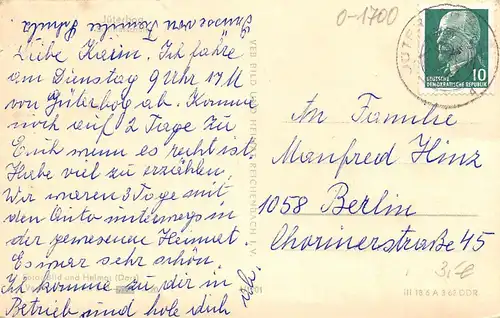 Jüterbog
Liebe Karin. Ich fahre
am Dienstag 9 Uhr 17 M
von Güterbog ab. Komme
noch auf 2 Tage zu
Euch wenn es recht ist.
Habe viel zu erzählen,
Wir waren 3 Tage mit
den Auto unterwegs in
der gewesene Heimat.
Es war sehr schön.
Foto: Bild und Heimat
Ich komme zu dir in
Betrieb und hole dich
ab.
Grüsse von Familie Schulz
VEB BILD UND HEIMAT REICHENBACH I. V.
0-1700
10
DEUTSCHE
DEMOKRATISCHE REPUBLIK
An Familie
Manfred Hinz
1058 Berlin
Chorinerstraße 45
III 18 6 A 3 63 DDR